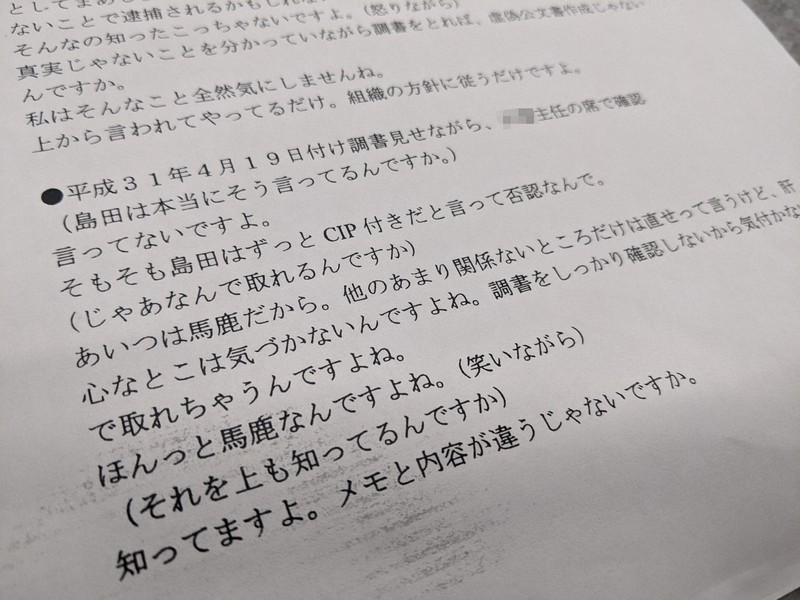 としてまあし
ないことで逮捕されるかもしれな
そんなの知ったこっちゃないですよ。(怒りながら)
真実じゃないことを分かっていながら調書をとれば、虚偽公文書作成じゃない
んですか。
私はそんなこと全然気にしませんね。
上から言われてやってるだけ。組織の方針に従うだけですよ。
●平成31年4月19日付け調書見せながら、主任の席で確認
(島田は本当にそう言ってるんですか。)
言ってないですよ。
そもそも島田はずっと CIP 付きだと言って否認なんで。
(じゃあなんで取れるんですか)
あいつは馬鹿だから。他のあまり関係ないところだけは直せって言うけど、肝
心なとこは気づかないんですよね。調書をしっかり確認しないから気付かな
で取れちゃうんですよね。
ほんっと馬鹿なんですよね。(笑いながら)
(それを上も知ってるんですか)
知ってますよ。メモと内容が違うじゃないですか。